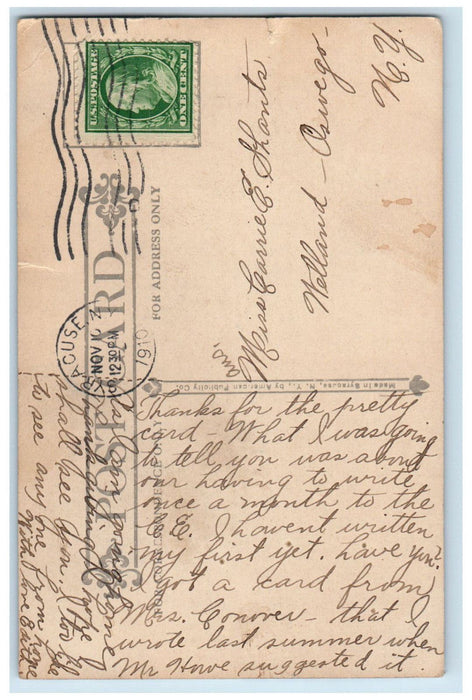 U.S. POSTAGE
ONE CENT
SYRACUSE, N.Y.
NOV 10
12 30 PM
1910
POST CARD
FOR ADDRESS ONLY
Miss Carrie E. Shants
Welland - Oswego -
N.Y.
ans.
Made in Syracuse, N. Y., by American Publicity Co.
FOR CORRESPONDENCE ONLY
Thanks for the pretty
card - What I was going
to tell you was about
our having to write
once a month to the
C.E. I havent written
my first yet. have you?
I got a card from
Mrs. Conover - that I
wrote last summer when
Mr Howe suggested it.
home
shall see you. I long
to see any one from home
With love